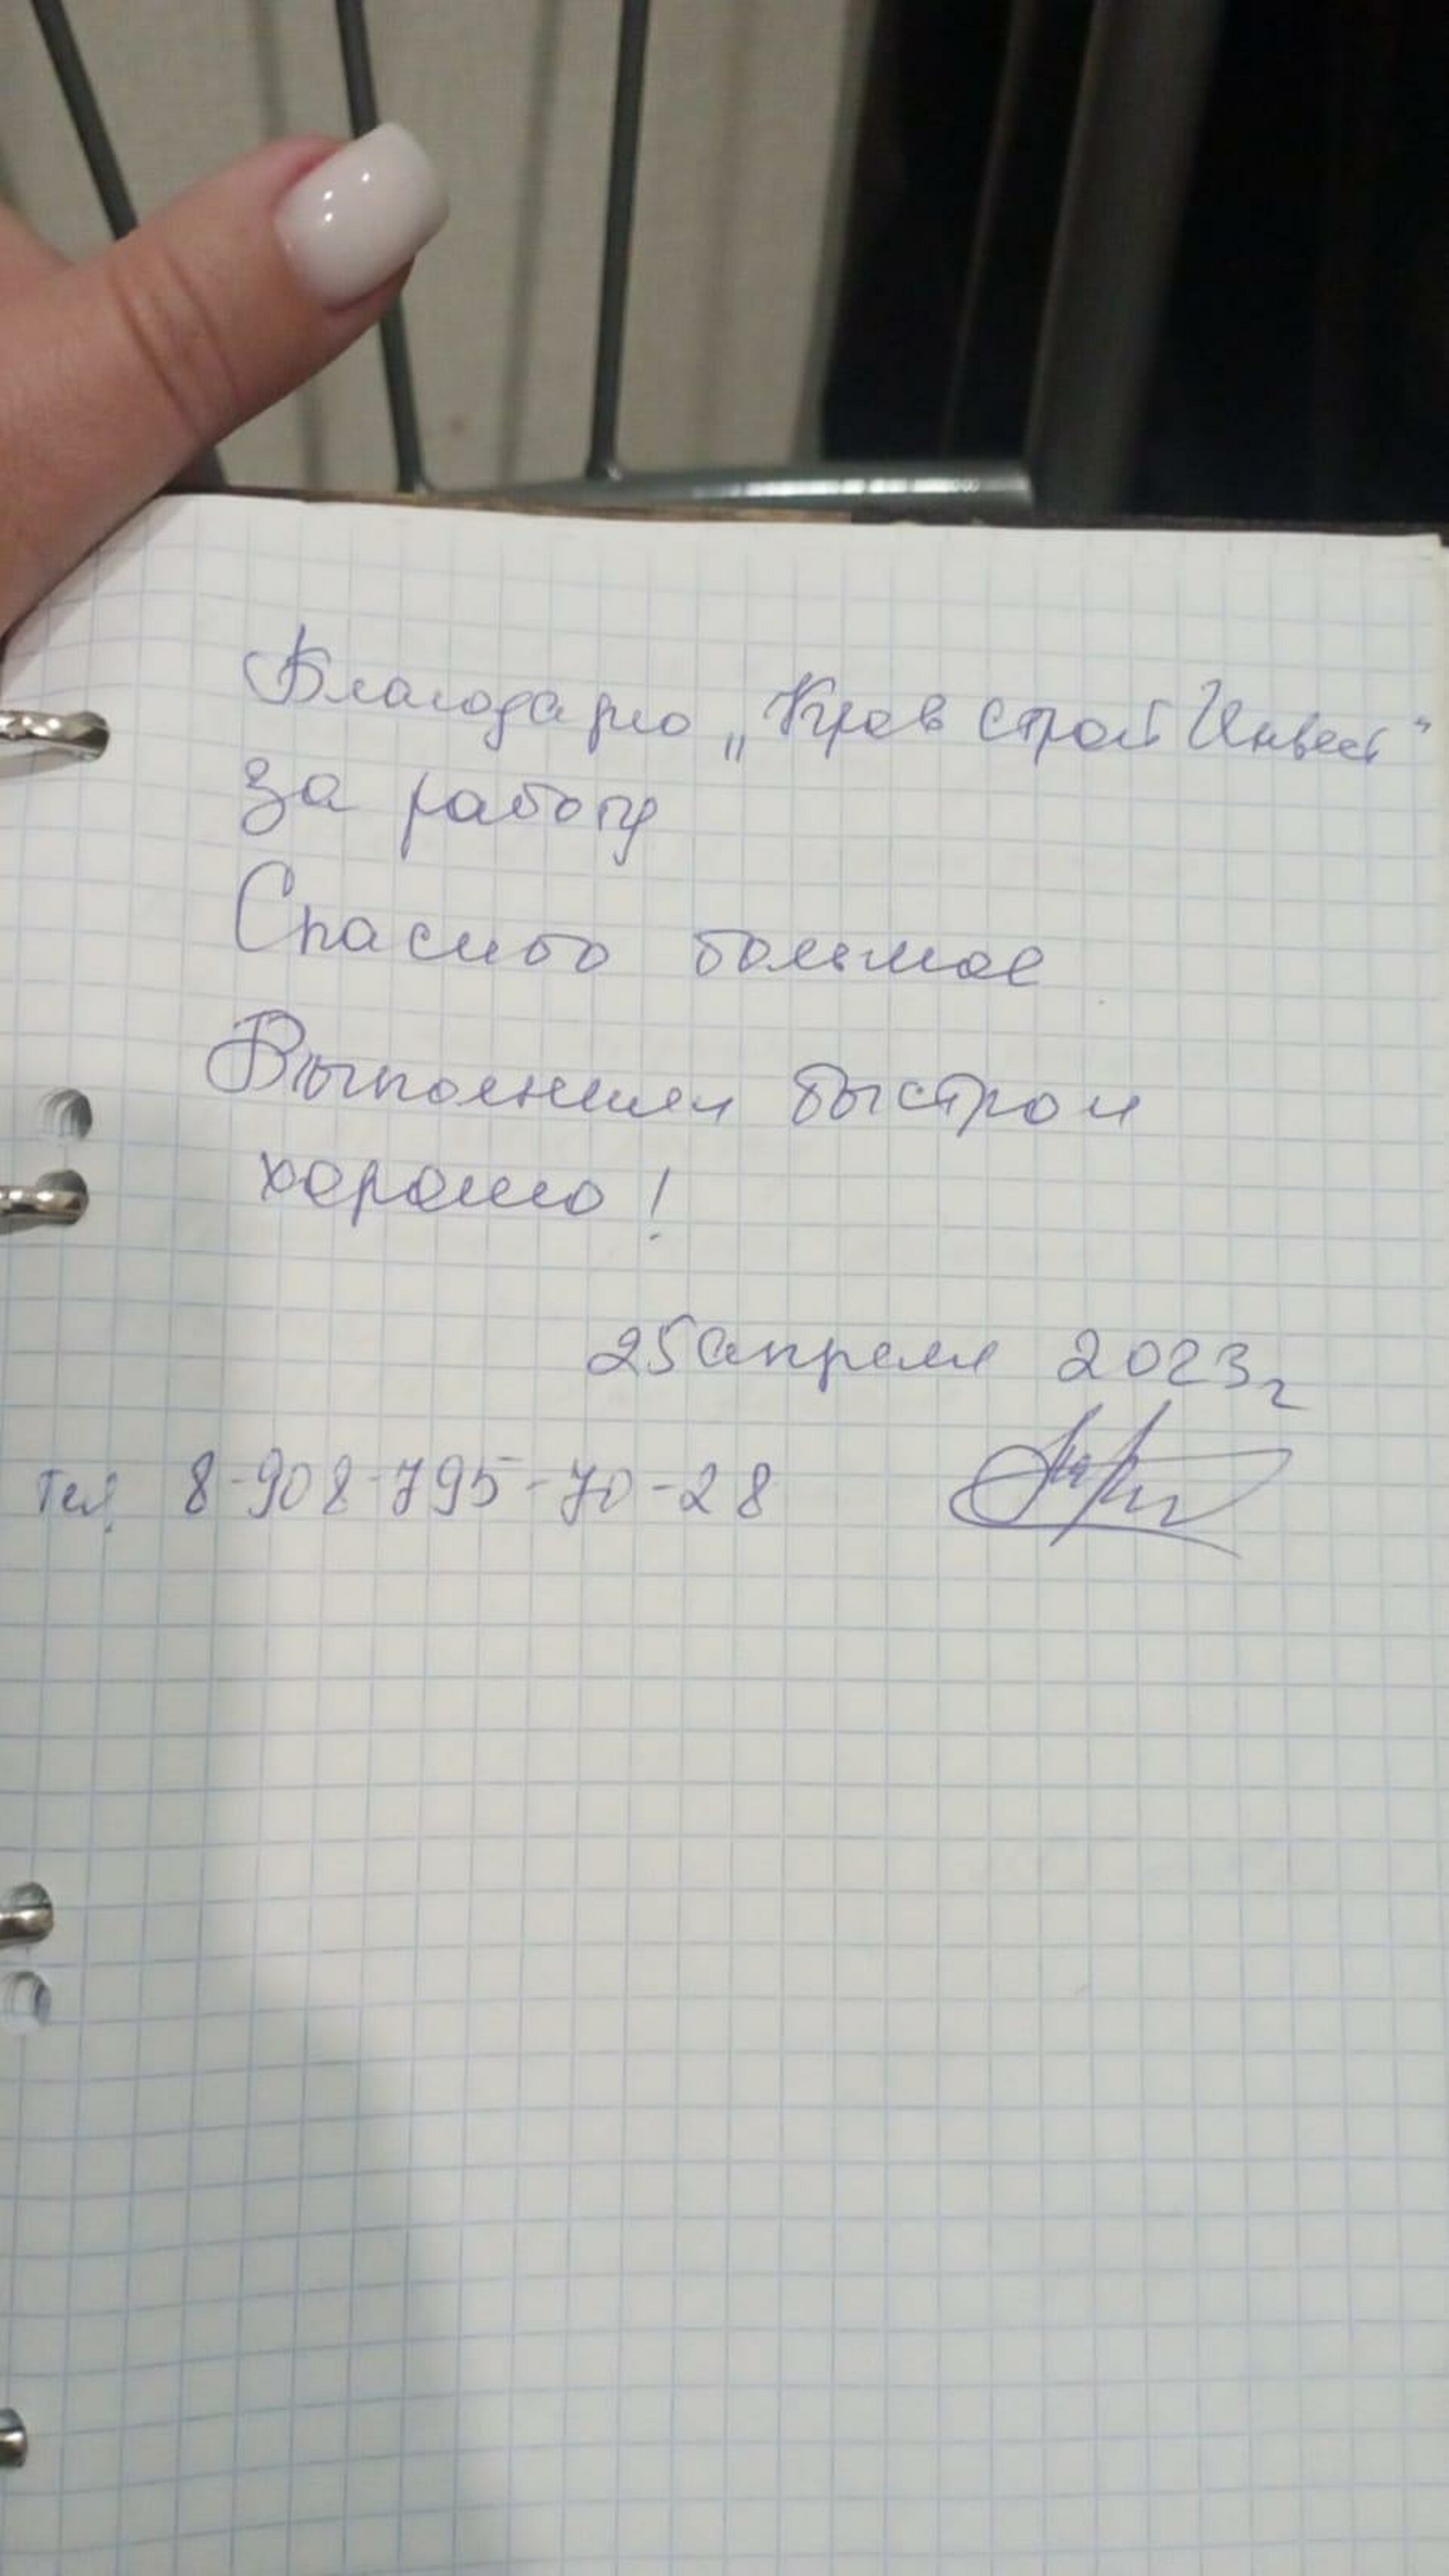 Благодарю „Кров Строй Инвест"
за работу
Спасибо большое
Выполнили быстро и
хорошо!
25 апреля 2023г
тел. 8-908-795-70-28